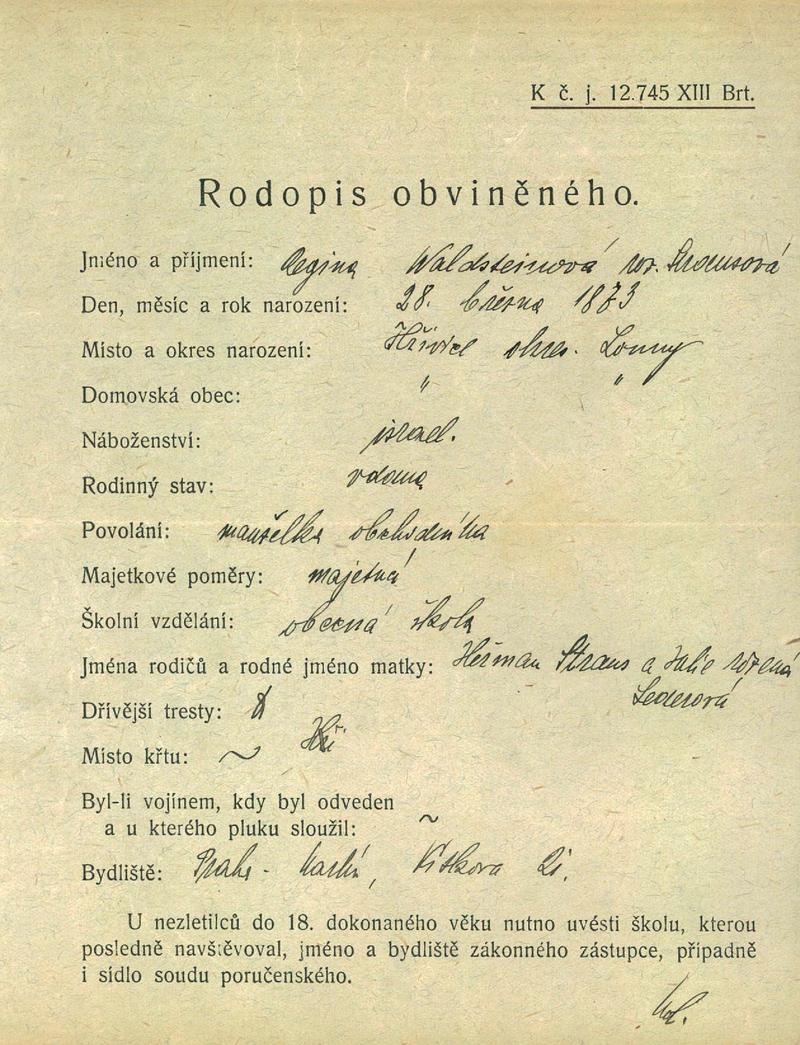 K č. j. 12.745 XIII Brt.
Rodopis obviněného.
Jméno a příjmení: Regina Waldsteinová roz. Strausová
Den, měsíc a rok narození: 28. března 1873
Místo a okres narození: Hřivice okres. Louny
Domovská obec: " "
Náboženství: israel.
Rodinný stav: vdova
Povolání: manželka obchodníka
Majetkové poměry: majetná
Školní vzdělání: obecná škola
Jména rodičů a rodné jméno matky: Heřman Straus a Julie rozená
Lederová
Dřívější tresty:
Místo křtu: ~
Byl-li vojínem, kdy byl odveden
a u kterého pluku sloužil: ~
Bydliště: Praha - Karlín, Vítkova 21.
U nezletilců do 18. dokonaného věku nutno uvésti školu, kterou
posledně navštěvoval, jméno a bydliště zákonného zástupce, případně
i sídlo soudu poručenského.